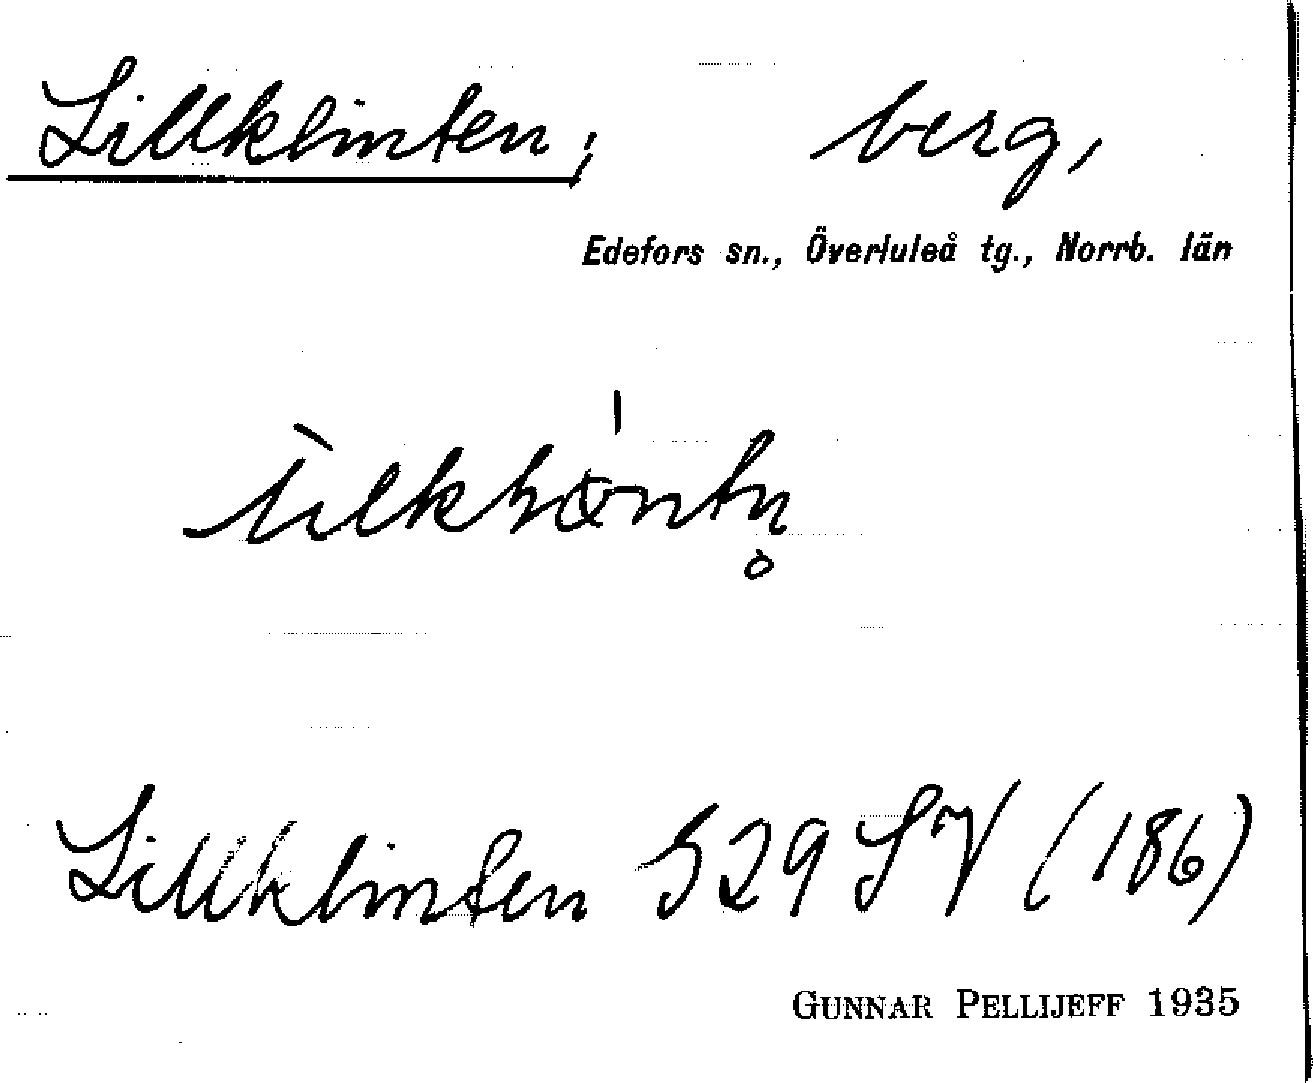 Lillklinten, berg,
Edefors sn., Överluleå tg., Norrb. län
Lillklinten 529 SV (186)
GUNNAR PELLIJEFF 1935